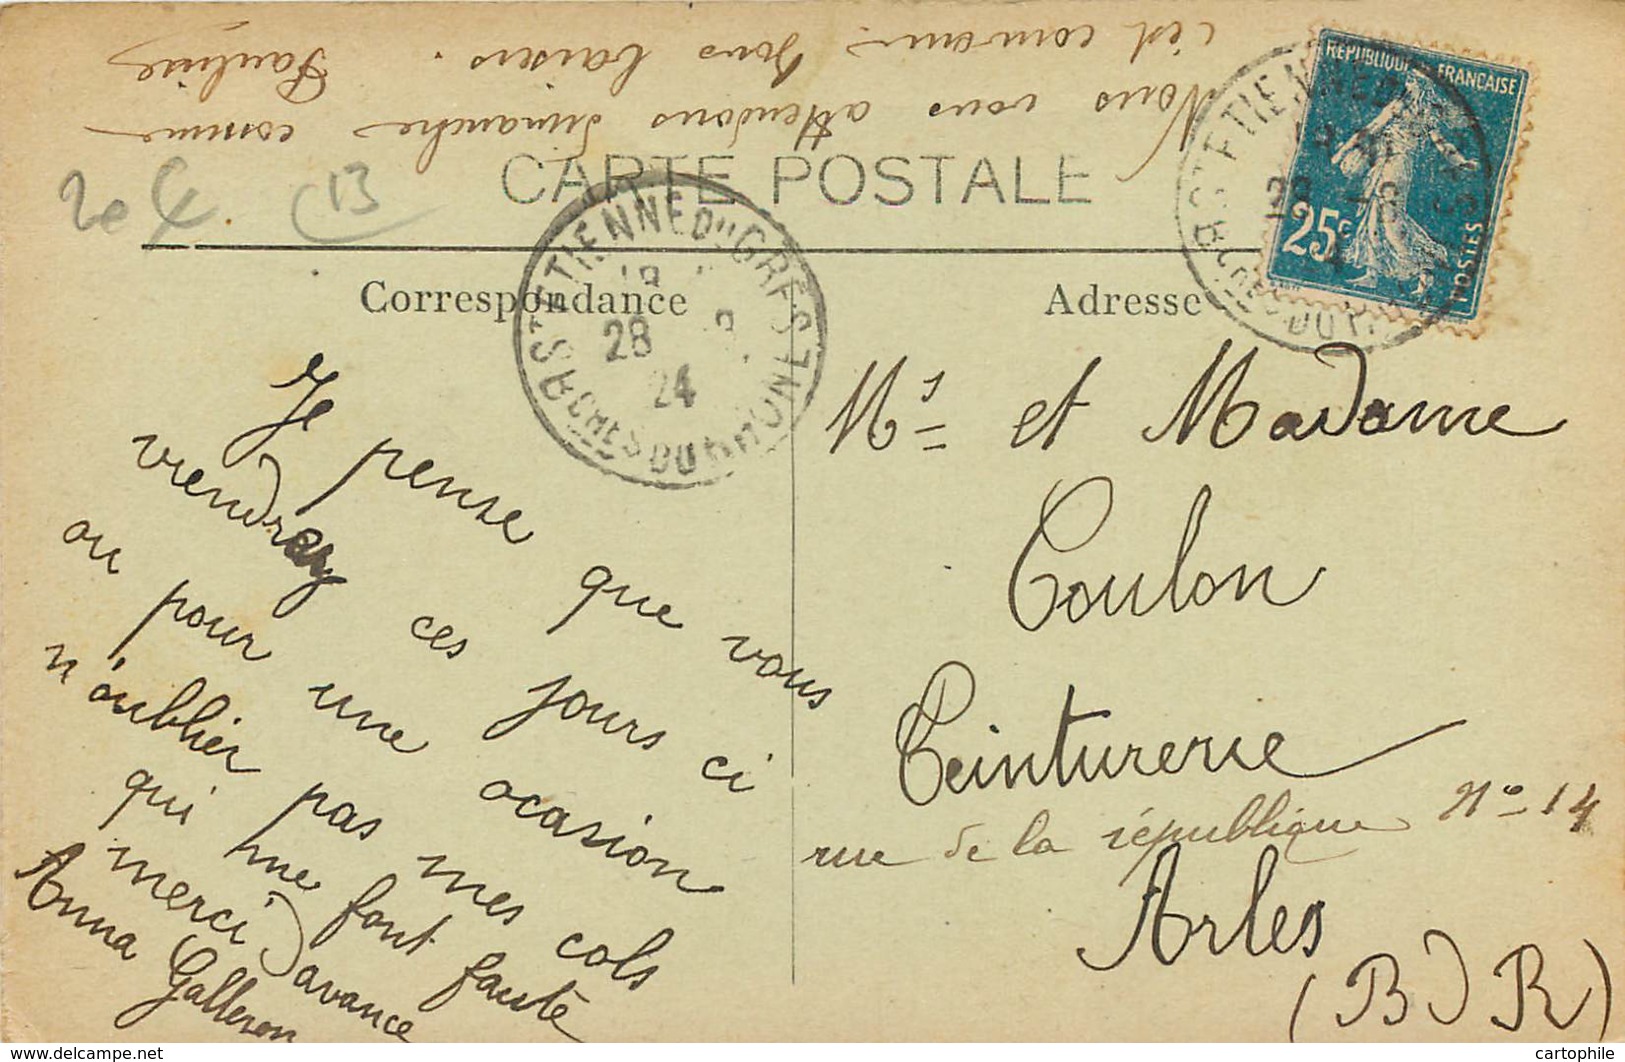 Nous vous attendons dimanche comme
c'est convenu. Bons baisers. Pauline
CARTE POSTALE
2e
CB
REPUBLIQUE FRANÇAISE
25c
POSTES
ST ETIENNE DU GRES
BCHES DU RHONE
28
24
Correspondance
Adresse
Je pense que vous
viendrez ces jours ci
ou pour une ocasion
n'oublier pas mes cols
qui me font faute
merci d avance
Anna Galleron
Mrs et Madame
Coulon
Teinturerie
rue de la république No 14
Arles
(B D R)
www.delcampe.net
cartophile